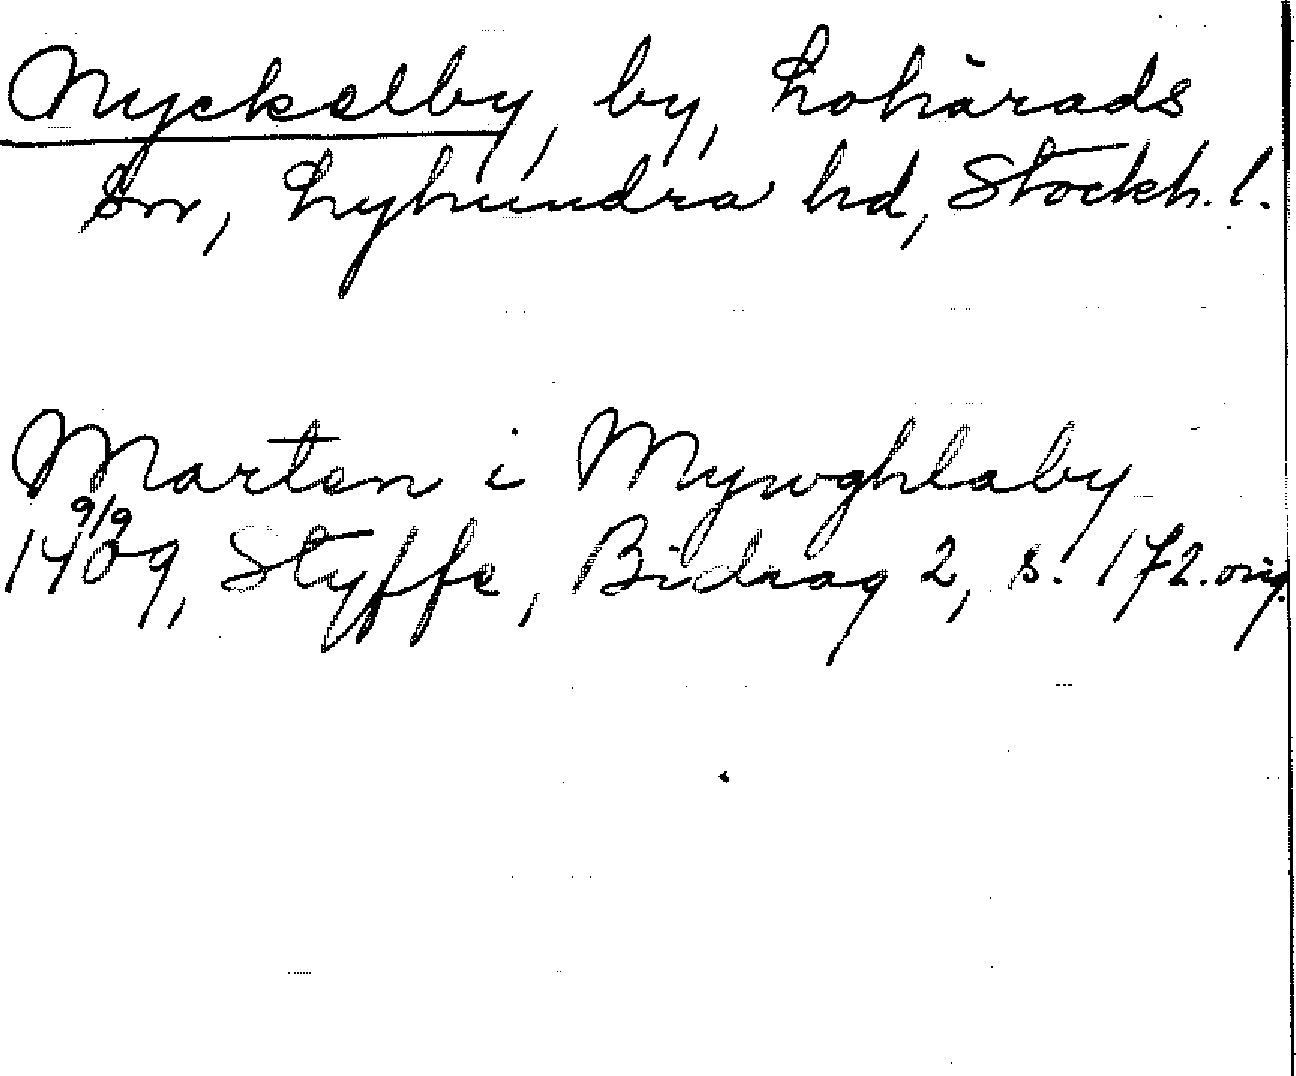 Nyckelby, by, Lohärads
sn, Lyhundra hd, Stockh. l.
Marten i Mywghlaby
9/9
1409, Styffe, Bidrag 2, s. 172. orig.